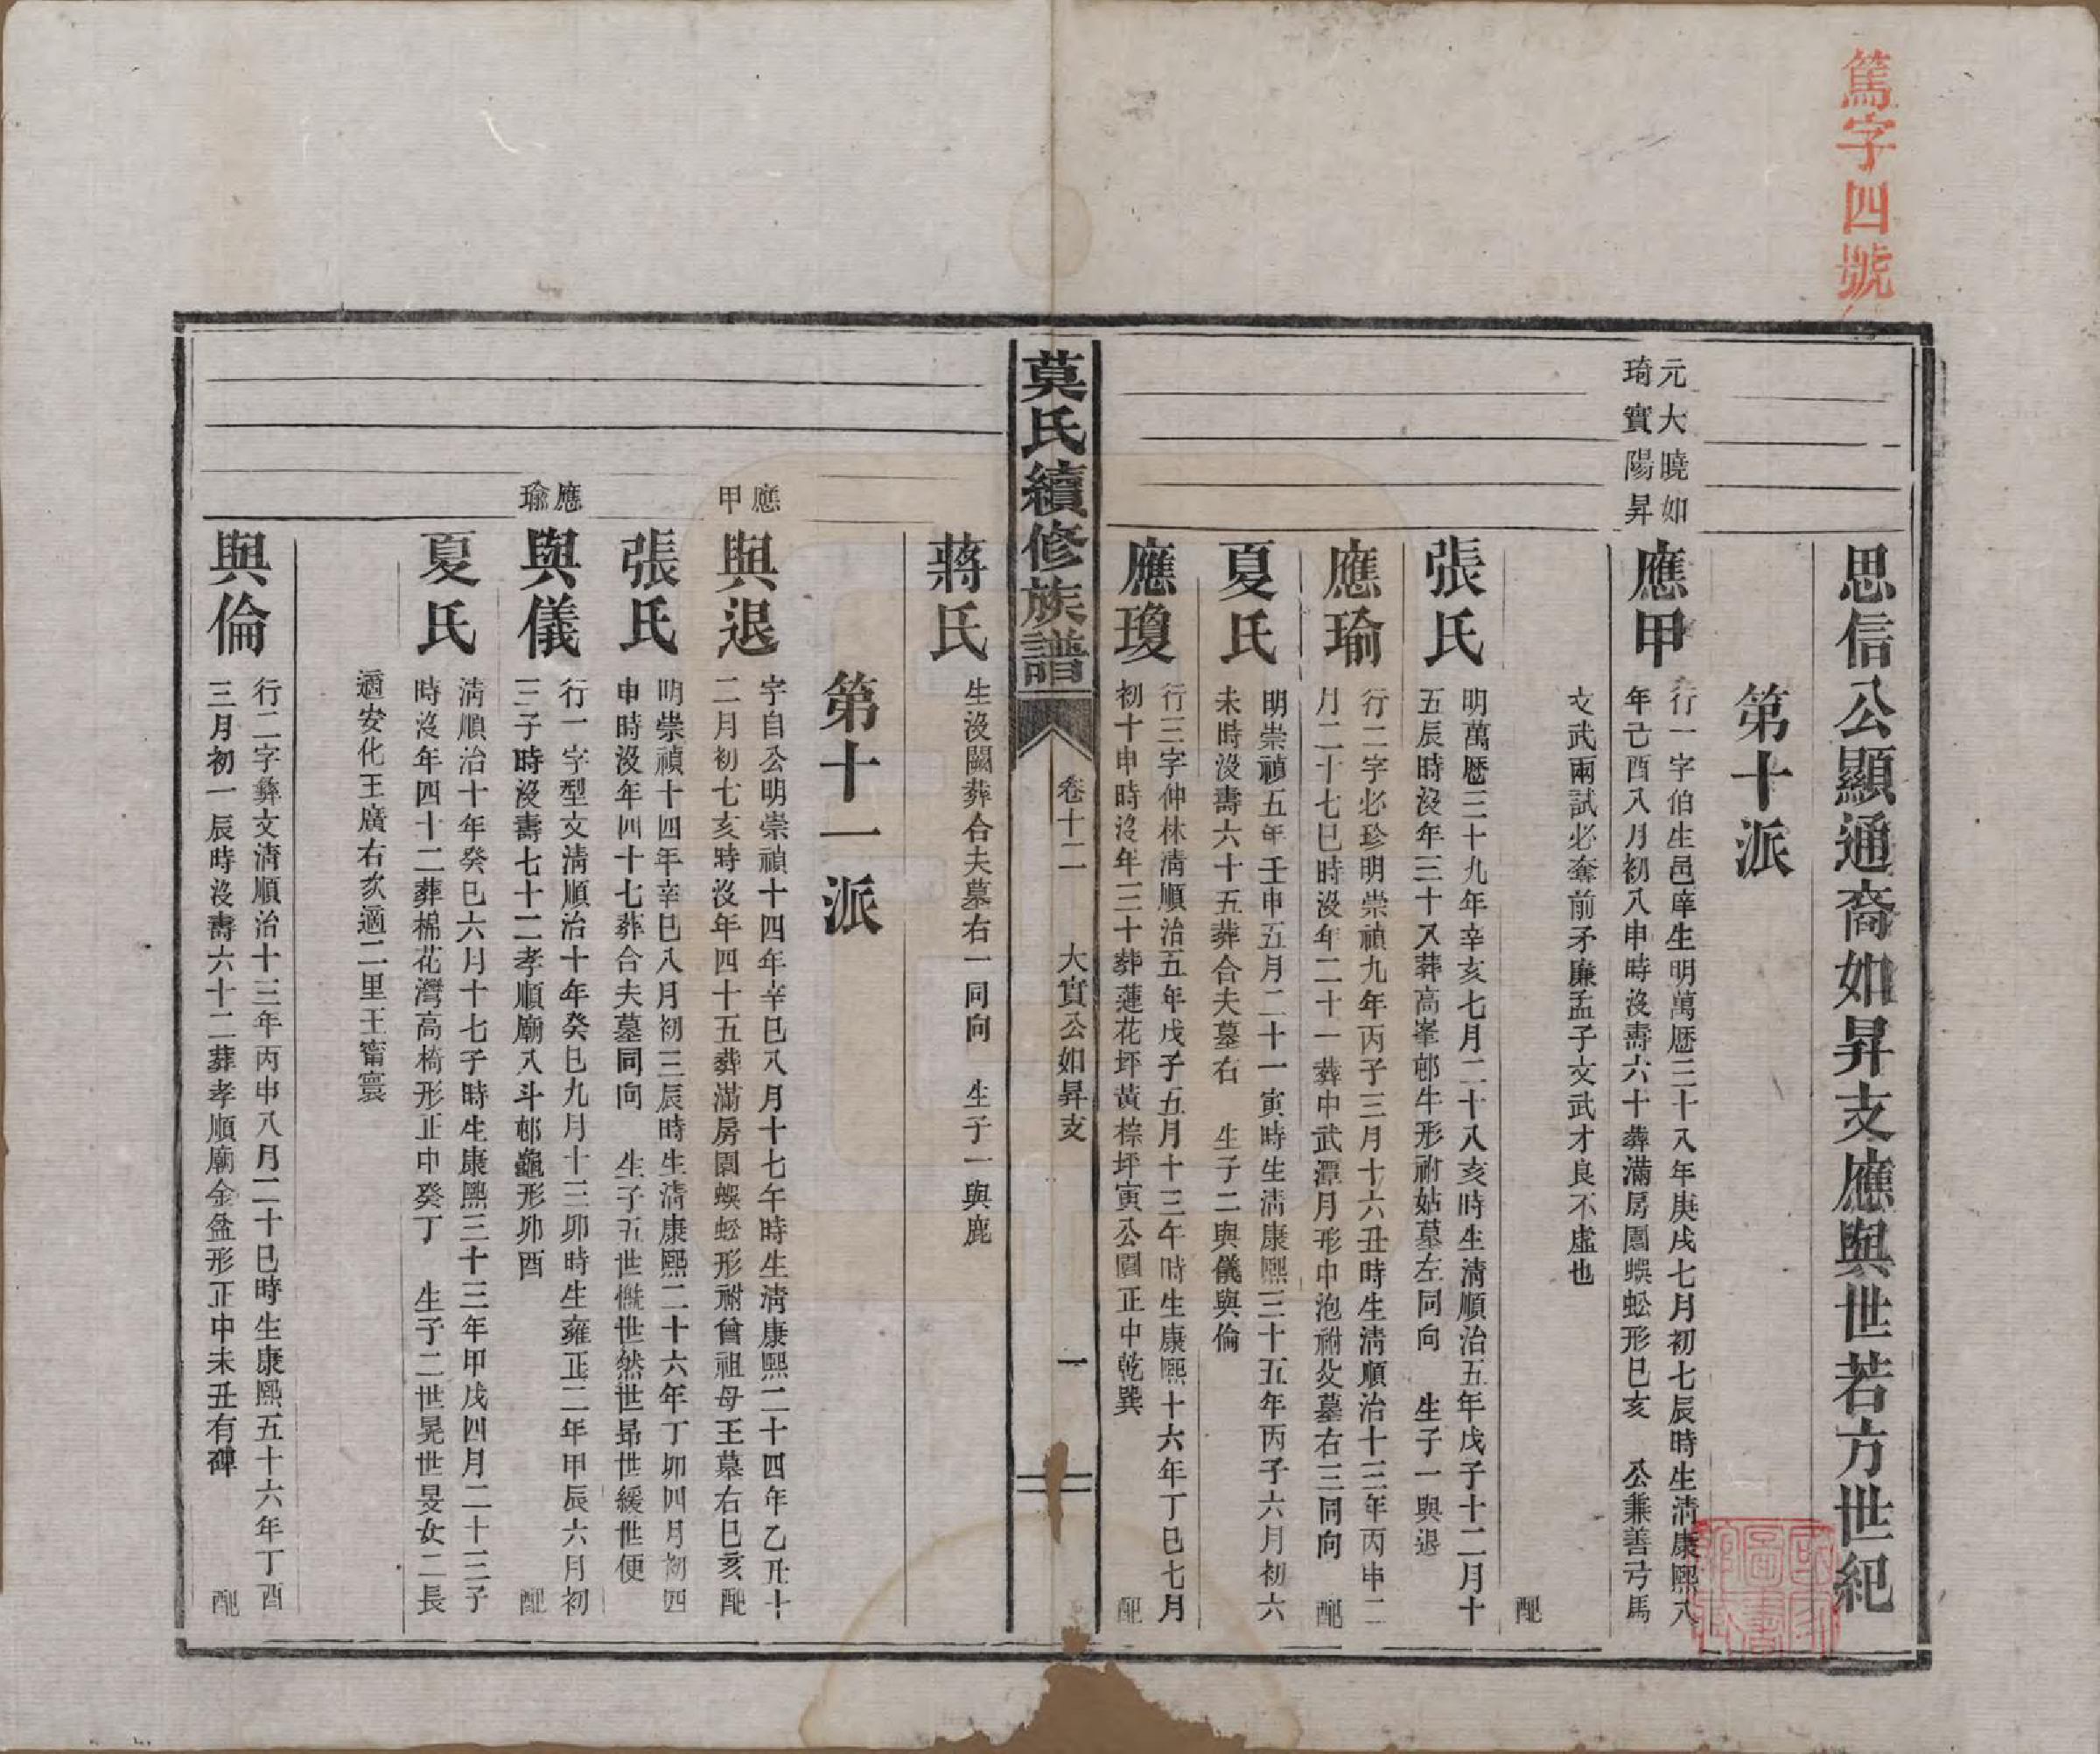 篤字四號
思信公顯通裔如昇支應與世若方世紀
第十派
元大曉如
琦實陽昇
應甲
行一字伯生邑庠生明萬歷三十八年庚戌七月初七辰時生清康熙八
年己酉八月初八申時沒壽六十葬滿房園蜈蚣形巳亥 公兼善弓馬
文武兩試必奪前矛廉孟子文武才良不虛也
配
張氏
明萬歷三十九年辛亥七月二十八亥時生清順治五年戊子十二月十
五辰時沒年三十八葬高峯邨牛形祔姑墓左同向 生子一與退
應瑜
行二字必珍明崇禎九年丙子三月十六丑時生清順治十三年丙申二
月二十七巳時沒年二十一葬中武潭月形中泡祔父墓右三同向 配
夏氏
明崇禎五年壬申五月二十一寅時生清康熙三十五年丙子六月初六
未時沒壽六十五葬合夫墓右 生子二與儀與倫
應瓊
行三字仲林清順治五年戊子五月十三午時生康熙十六年丁巳七月
初十申時沒年三十葬蓮花坪黃棕坪寅公園正中乾巽 配
莫氏續修族譜
卷十二 大實公如昇支 一
蔣氏
生沒闕葬合夫墓右一同向 生子一與鹿
第十一派
應
甲
與退
字自公明崇禎十四年辛巳八月十七午時生清康熙二十四年乙丑十
二月初七亥時沒年四十五葬滿房園蜈蚣形祔曾祖母王墓右巳亥 配
張氏
明崇禎十四年辛巳八月初三辰時生清康熙二十六年丁卯四月初四
申時沒年四十七葬合夫墓同向 生子五世僟世然世昂世緩世便
應
瑜
與儀
行一字型文清順治十年癸巳九月十三卯時生雍正二年甲辰六月初
三子時沒壽七十二孝順廟八斗邨龜形卯酉 配
夏氏
清順治十年癸巳六月十七子時生康熙三十三年甲戌四月二十三子
時沒年四十二葬棉花灣高椅形正中癸丁 生子二世晃世旻女二長
適安化王廣右次適二里王甯寰
與倫
行二字彝文清順治十三年丙申八月二十巳時生康熙五十六年丁酉
三月初一辰時沒壽六十二葬孝順廟金盆形正中未丑有碑 配